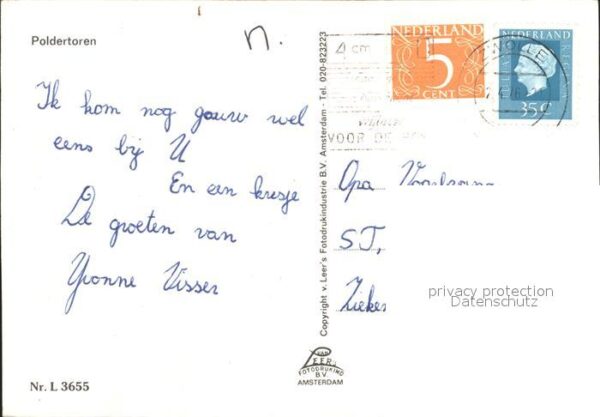 Poldertoren
n.
Ik kom nog gauw wel
eens bij U
En een kusje
De groeten van
Yvonne Visser
Nr. L 3655
Copyright v. Leer's Fotodrukindustrie B.V. Amsterdam - Tel. 020-823223
4 cm
VOOR DE
NEDERLAND
5
CENT
NEDERLAND
35 c
ZWOLLE
Opa
ST,
Zieken
privacy protection
Datenschutz
VAN
LEER's
FOTODRUKIND
B.V
AMSTERDAM